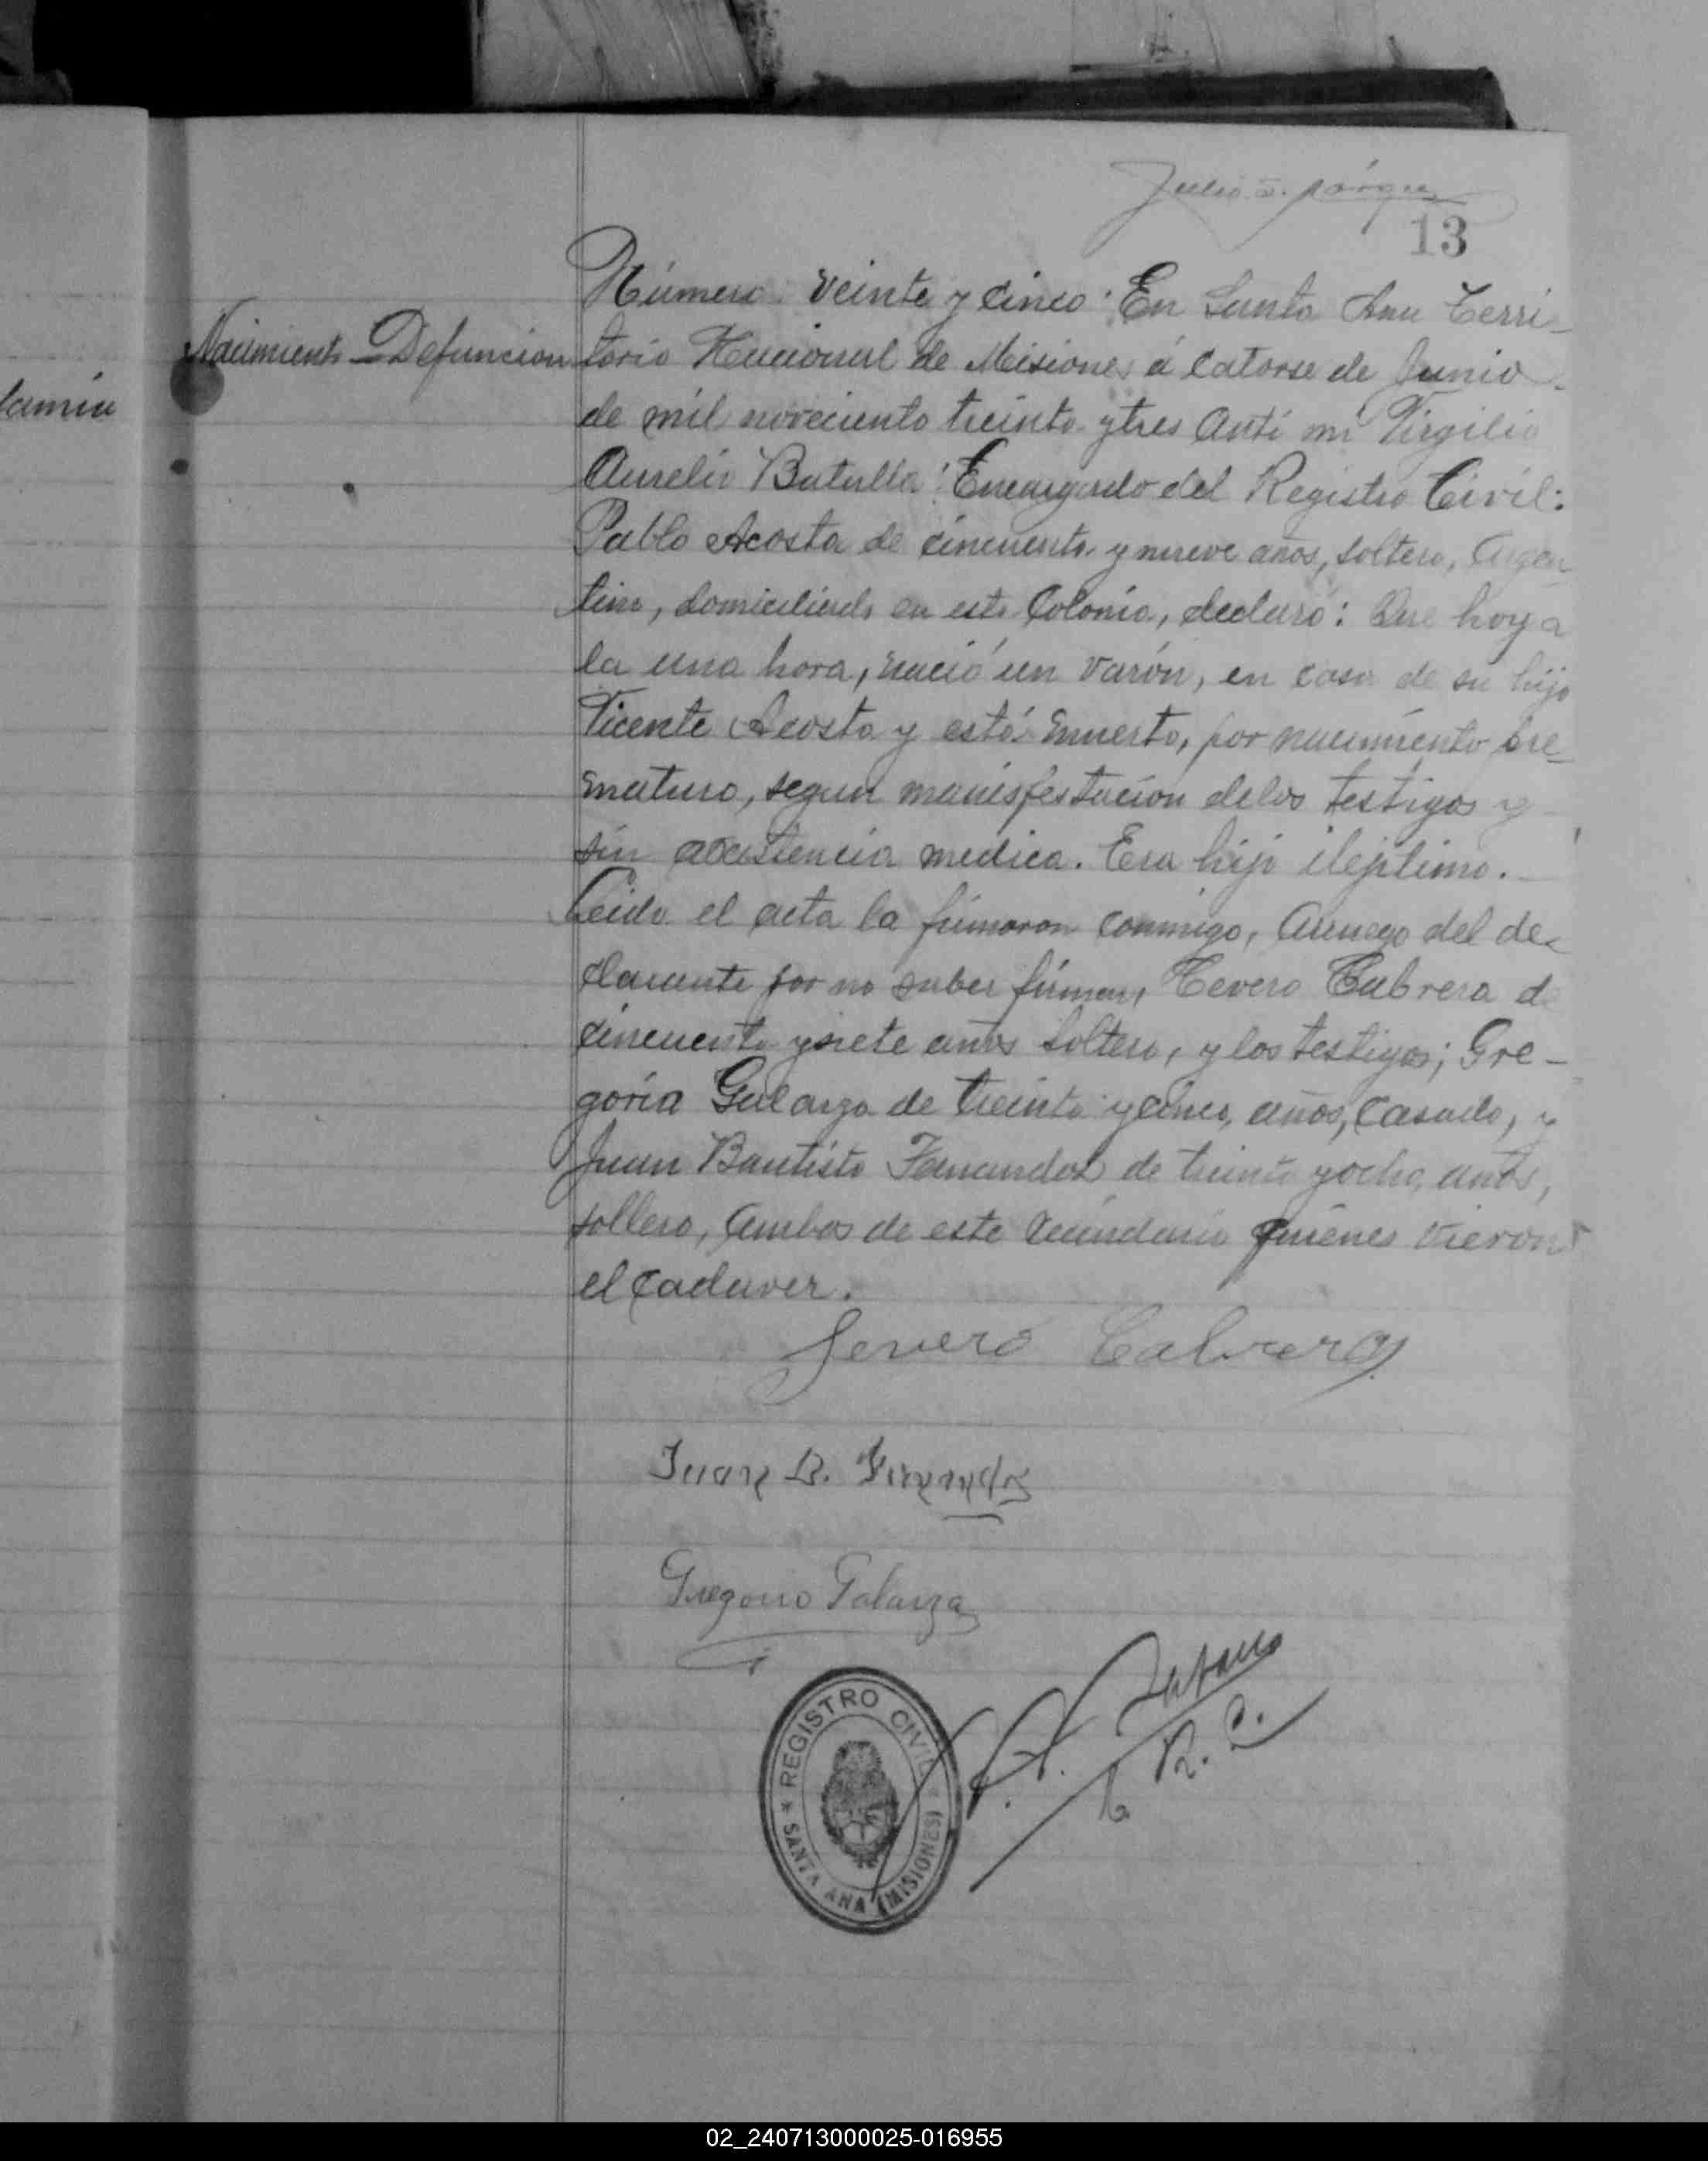 13
Número veinte y cinco: En Santa Ana Terri-
Nacimiento Defuncion
torio Nacional de Misiones á Catorse de Junio
lamia
de mil noveciento treinta y tres Anti mi Virgilio
Aurelio Batalla: Encargado del Registro Civil:
Pablo Acosta de cincuenta y nueve años, soltero, Argen
tino, domiciliado en esta Colonia, declaró: Que hoy a
la una hora, nació un varón, en casa de su hijo
Vicente Acosta y está muerto, por nacimiento pre-
maturo, segun manisfestacion delos testigos y
sin acistencia medica. Era hijo ilejitimo.
Leida el acta la firmaron conmigo, Aruego del de-
clarante por no saber firmar, Cevero Cabrera de
cincuenta y siete años Soltero, y los testigos; Gre-
goria Galarza de treinta y cinco, años, Casado, y
Juan Bautista Fernandez de treinta y ocho, años,
soltero, Ambos de este vecindario quienes vieron
el cadaver.
Severo Cabrera
Juan B.
Gregorio Galarza
REGISTRO CIVIL
* SANTA ANA (MISIONES) *
R. C.
02_240713000025-016955